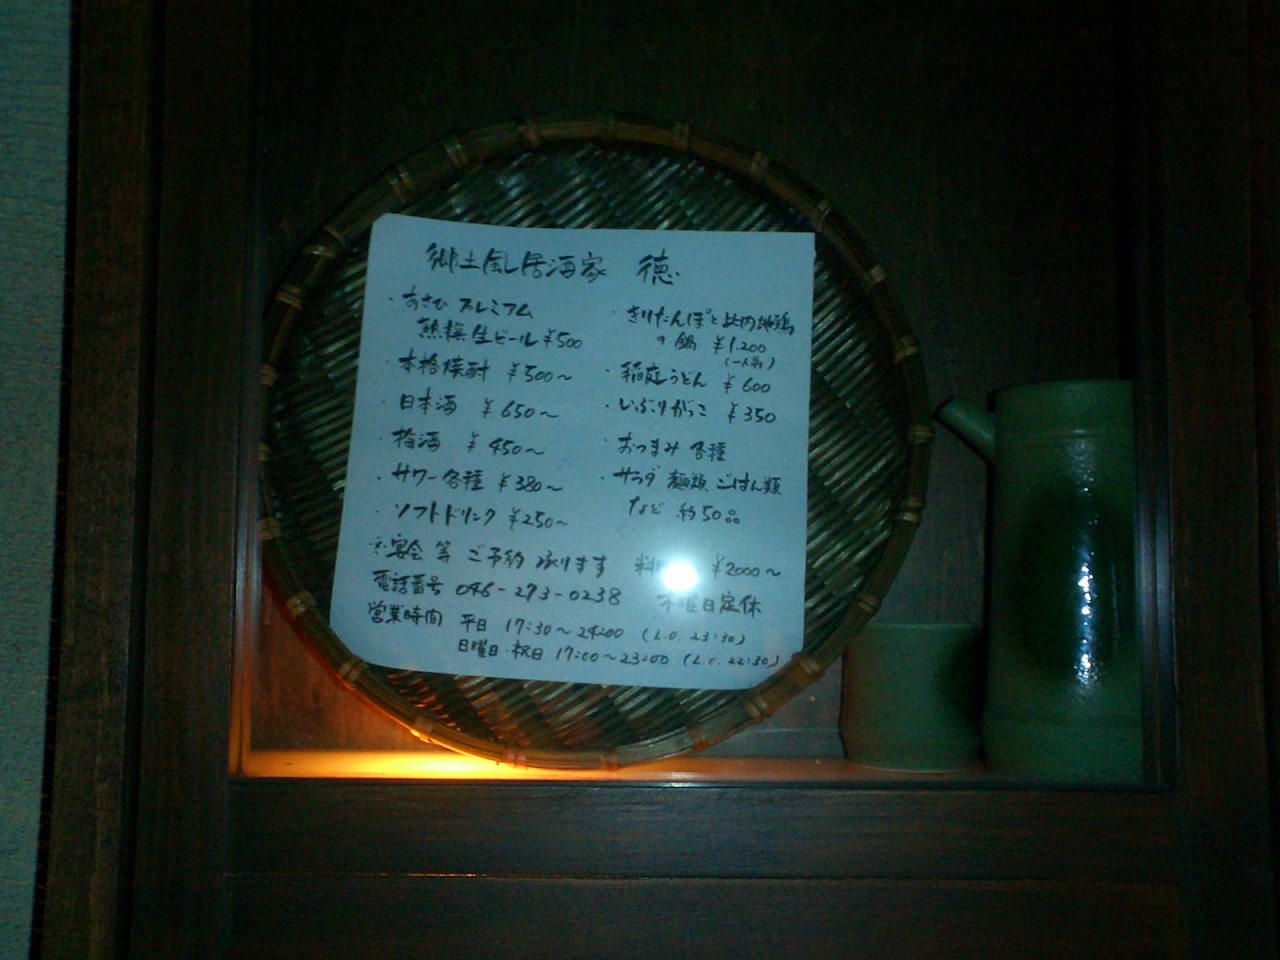 郷土風居酒家 徳
・あさひ プレミアム
熟撰生ビール ¥500
・本格焼酎 ¥500～
・日本酒 ¥650～
・梅酒 ¥450～
・サワー各種 ¥380～
・ソフトドリンク ¥250～
・きりたんぽと比内地鶏
の鍋 ¥1,200
(一人前)
・稲庭うどん ¥600
・いぶりがっこ ¥350
・おつまみ 各種
・サラダ 麺類、ごはん類
など 約50品
※宴会等 ご予約 承ります 料 ¥2000～
電話番号 046-273-0238 木曜日定休
営業時間 平日 17:30～24:00 (L.O. 23:30)
日曜日・祝日 17:00～23:00 (L.O. 22:30)